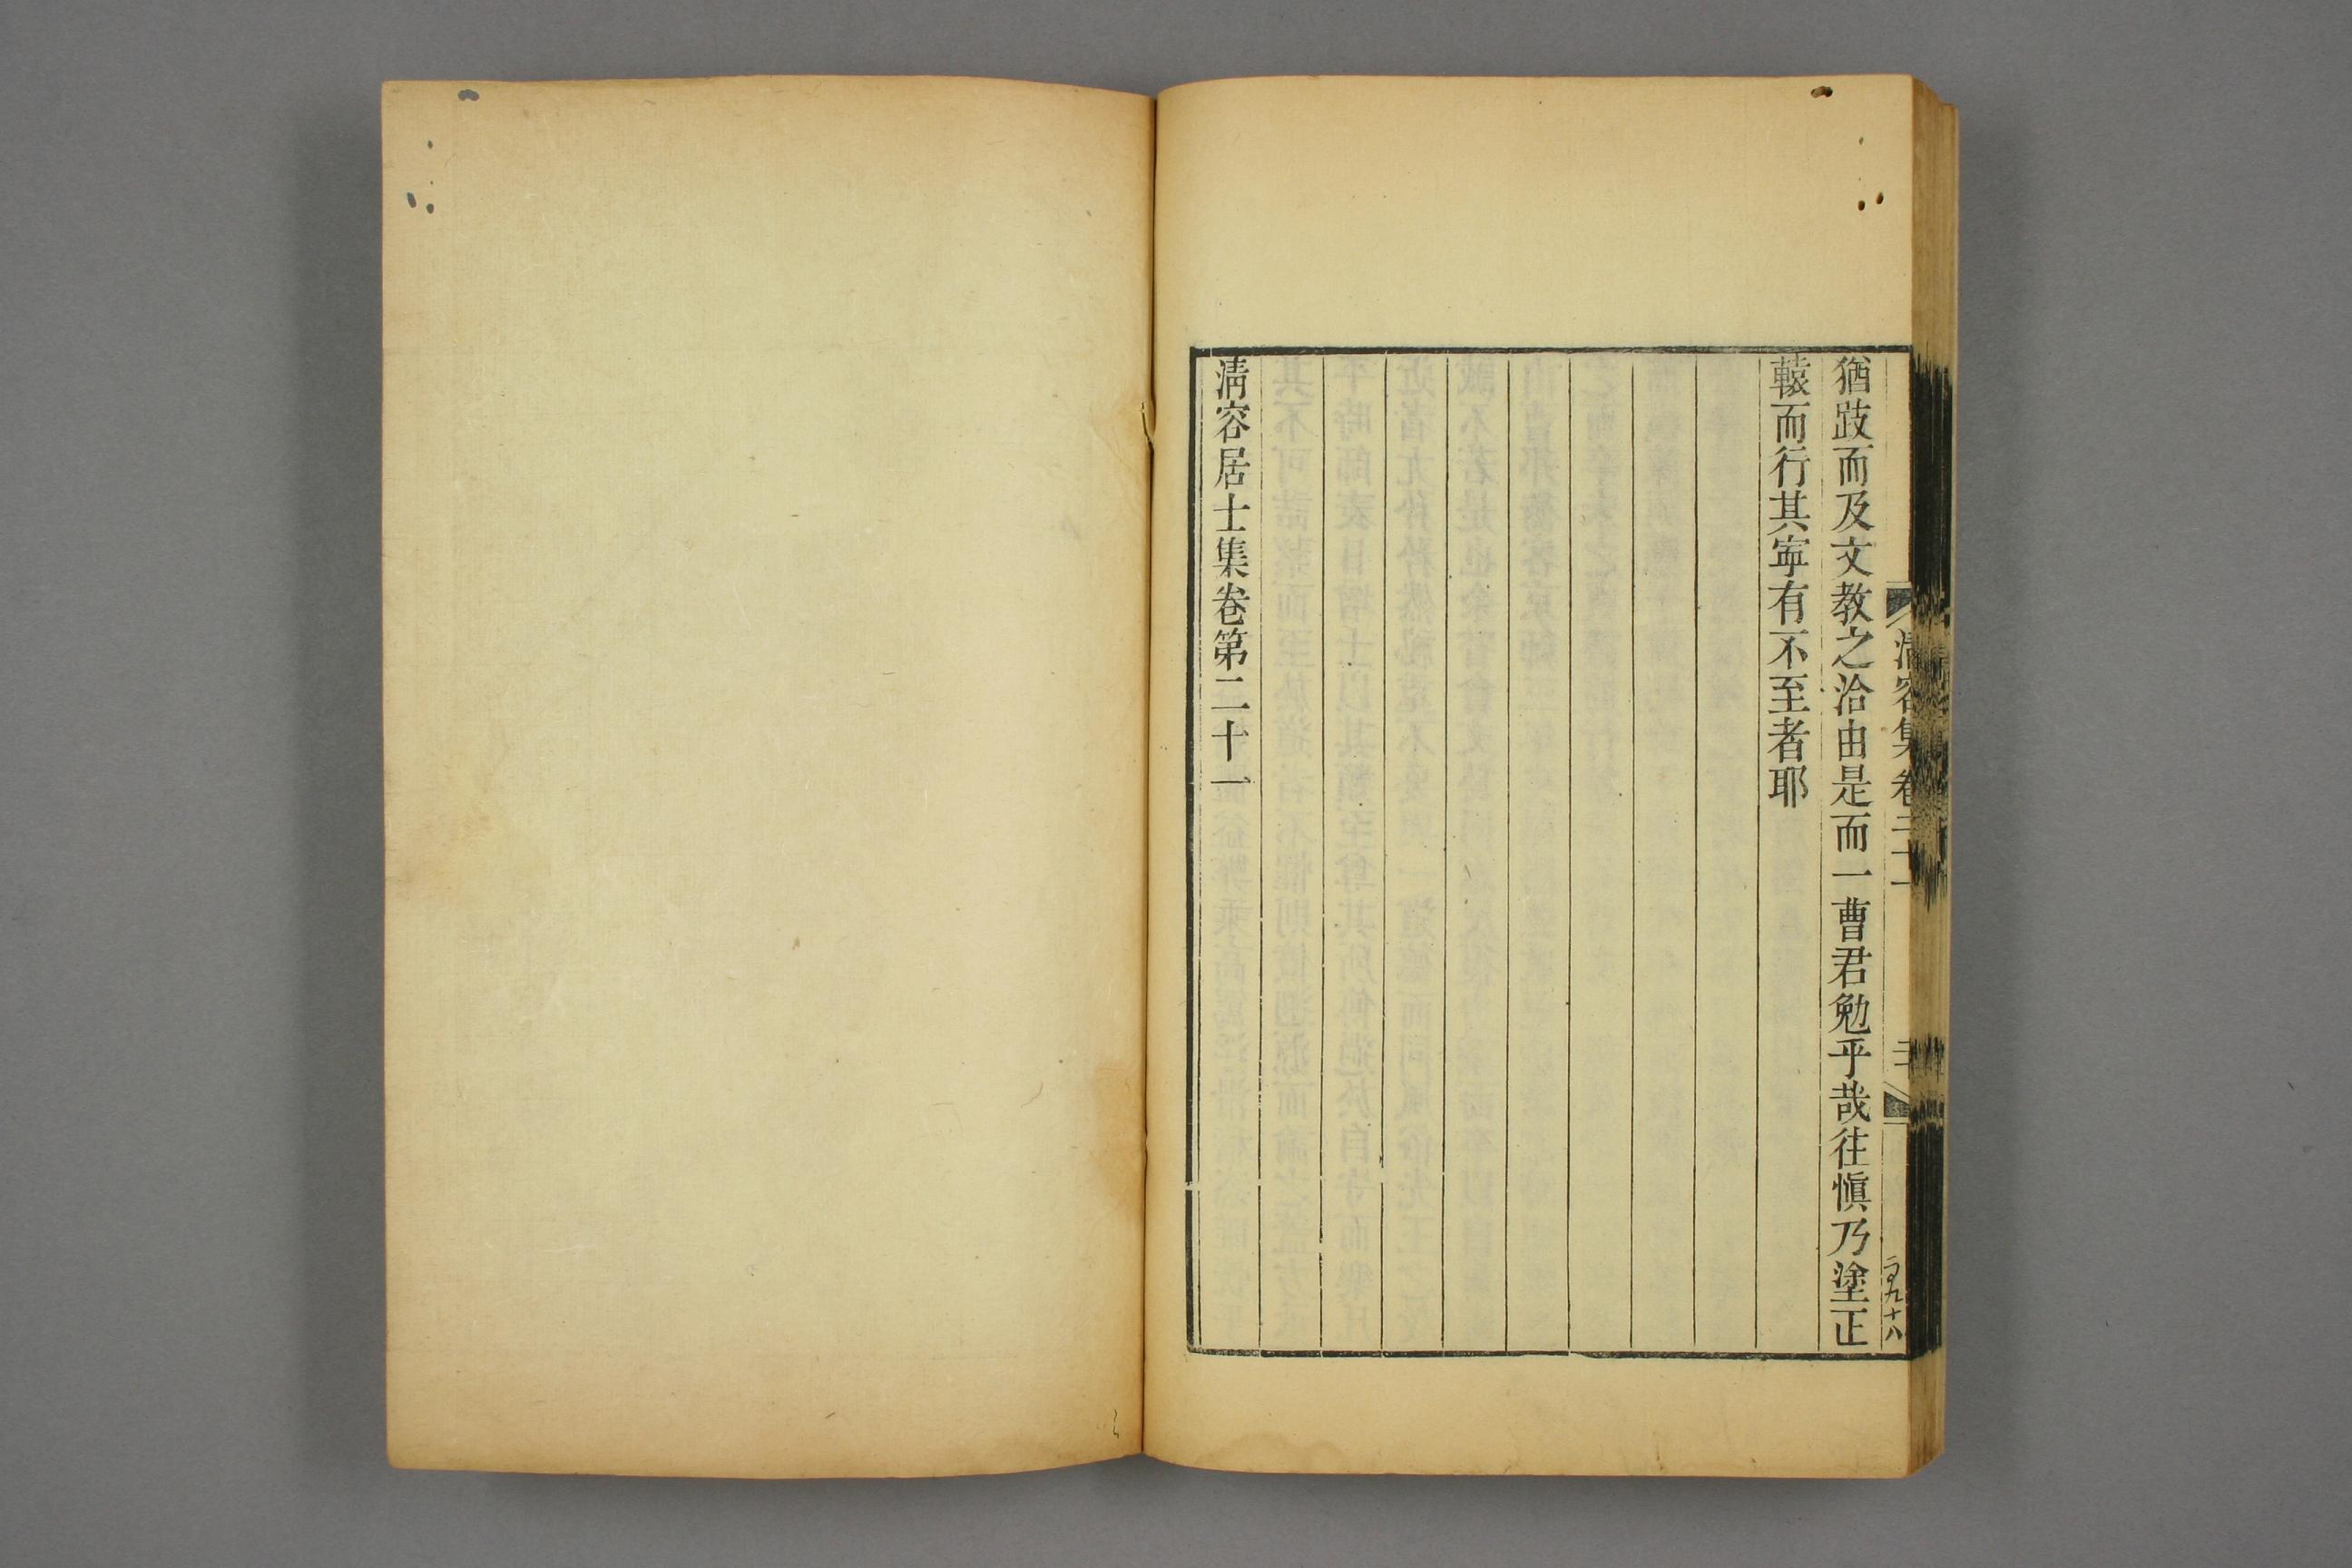 猶跂而及文教之洽由是而一曹君勉乎哉往愼乃塗正
轅而行其寧有不至者耶
淸容居士集卷第二十一
淸容集卷二十一